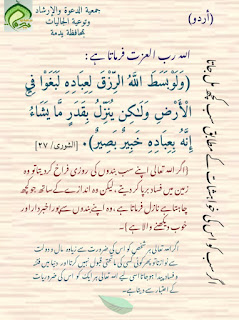 جمعية الدعوة والإرشاد
وتوعية الجاليات
بمحافظة يدمة
(أردو)
اللہ رب العزت فرماتا ہے:
﴿وَلَوْ بَسَطَ اللَّهُ الرِّزْقَ لِعِبَادِهِ لَبَغَوْا فِي
الْأَرْضِ وَلَكِن يُنَزِّلُ بِقَدَرٍ مَّا يَشَاءُ
إِنَّهُ بِعِبَادِهِ خَبِيرٌ بَصِيرٌ﴾. [الشورى/ ٢٧]
(اگر اللہ تعالی اپنے سب بندوں کی روزی فراخ کر دیتا تو وہ
زمین میں فساد برپا کر دیتے، لیکن وہ اندازے کے ساتھ جو کچھ
چاہتا ہے نازل فرماتا ہے، وہ اپنے بندوں سے پورا خبردار اور
خوب دیکھنے والا ہے)۔
اگر اللہ تعالی ہر شخص کو اس کی ضرورت سے زیادہ مال و دولت
سے نوازتا تو پھر کوئی کسی کی ماتحتی قبول نہیں کرتا اور دنیا میں فتنہ
و فساد پیدا ہو جاتا اسی لیے اللہ تعالی ہر ایک کو اس کی ضروریات
کے اعتبار سے دیتا ہے۔
اگر سب کو اس کی خواہشات کے مطابق سب کچھ مل جاتا